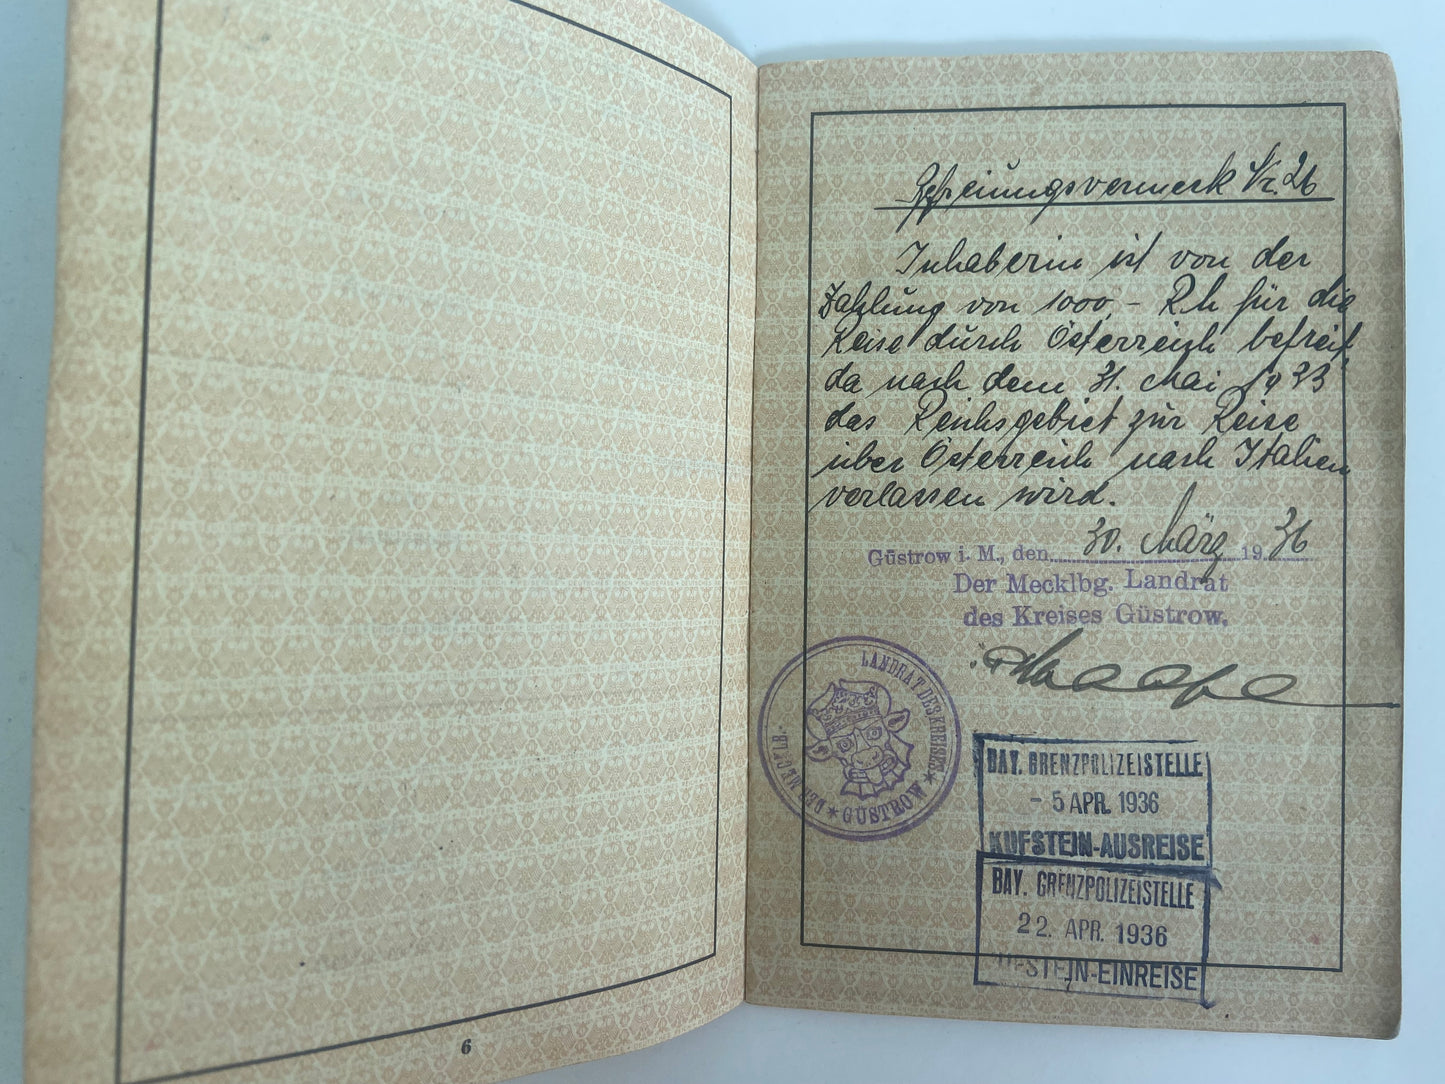 6
Befreiungsvermerk Nr. 26
Inhaberin ist von der
Zahlung von 1000,- RM für die
Reise durch Österreich befreit,
da nach dem 31. Mai 1933
das Reichsgebiet zur Reise
über Österreich nach Italien
verlassen wird.
Güstrow i. M., den 30. März 1936
Der Mecklbg. Landrat
des Kreises Güstrow.
DER MECKLB. LANDRAT DES KREISES
★ GÜSTROW ★
BAY. GRENZPOLIZEISTELLE
- 5 APR. 1936
KUFSTEIN-AUSREISE
BAY. GRENZPOLIZEISTELLE
22. APR. 1936
KUFSTEIN-EINREISE